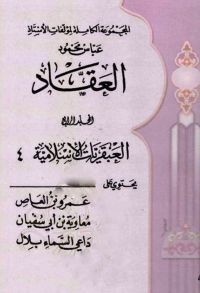 المجموعة الكاملة لمؤلفات الأستاذ
عباس محمود
العقاد
المجلد الرابع
العبقريات الإسلامية ٤
يحتوي على
عمرو بن العاص
معاوية بن أبي سفيان
داعي السماء بلال